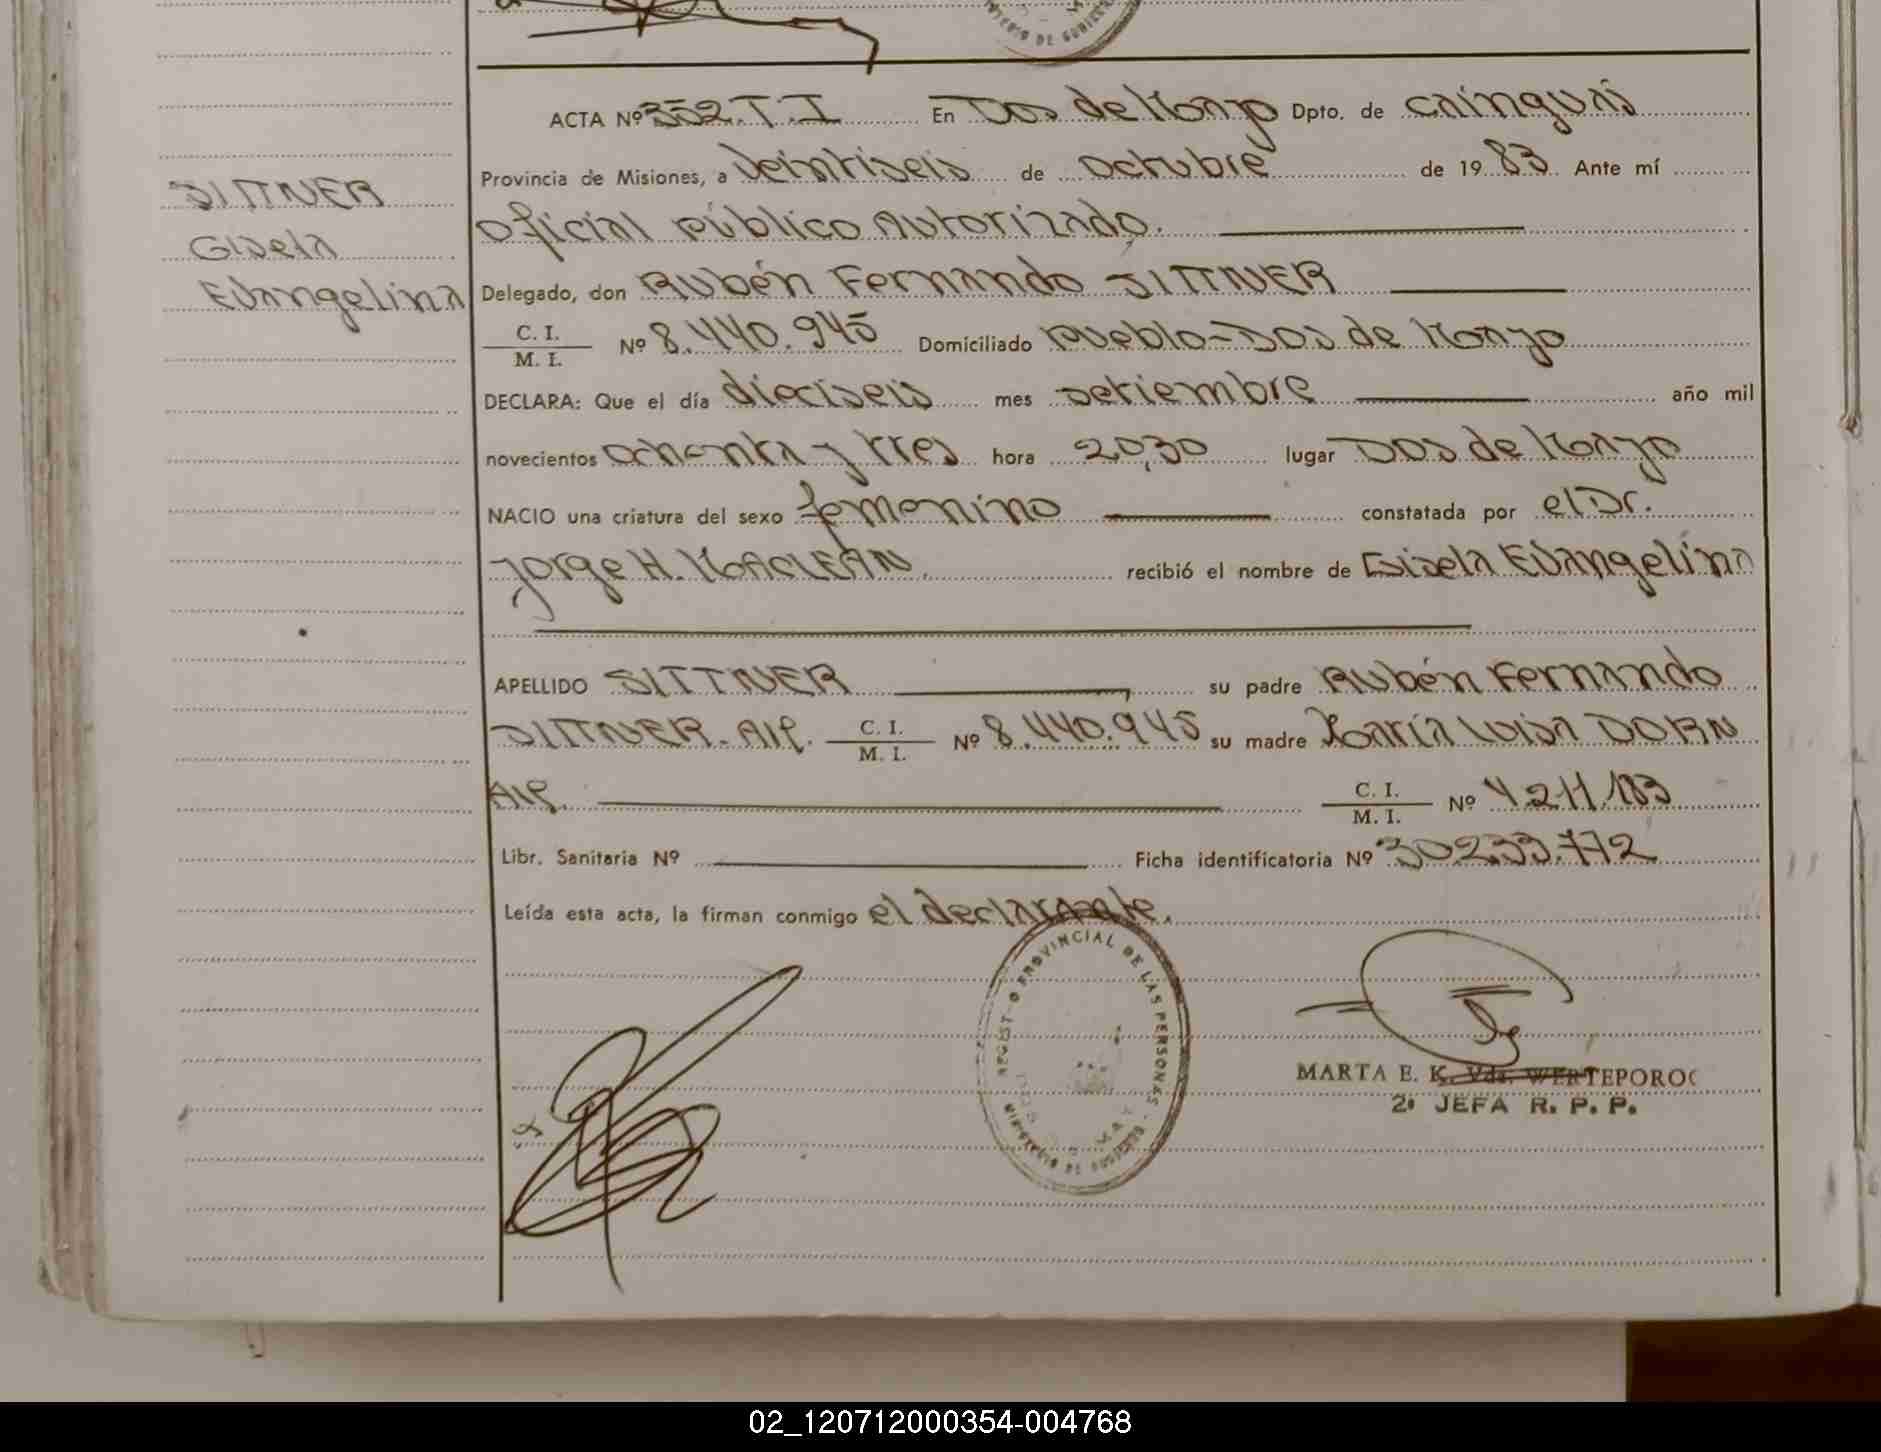 TERIO DE GOBIER
ACTA Nº 352.T.I En Dos de Mayo Dpto. de Cainguás
Provincia de Misiones, a veintiseis de octubre de 19 83 Ante mí
Oficial Público Autorizado.
SITTNER
Gisela
Evangelina
Delegado, don Rubén Fernando SITTNER
C. I.
M. I. Nº 8.440.945 Domiciliado Pueblo-Dos de Mayo
DECLARA: Que el día dieciseis mes setiembre año mil
novecientos ochenta y tres hora 20,30 lugar Dos de Mayo
NACIO una criatura del sexo femenino constatada por el Dr.
Jorge H. MACLEAN. recibió el nombre de Gisela Evangelina
APELLIDO SITTNER su padre Rubén Fernando
SITTNER. AIP. C. I.
M. I. Nº 8.440.945 su madre María Luisa DORN
AIP. C. I.
M. I. Nº 4.211.183
Libr. Sanitaria Nº Ficha identificatoria Nº 30233.772
Leída esta acta, la firman conmigo el declarante.
REGISTRO PROVINCIAL DE LAS PERSONAS
MINISTERIO DE GOBIERNO
MARTA E. K. Vda. WERTEPOROC
2ª JEFA R. P. P.
02_120712000354-004768